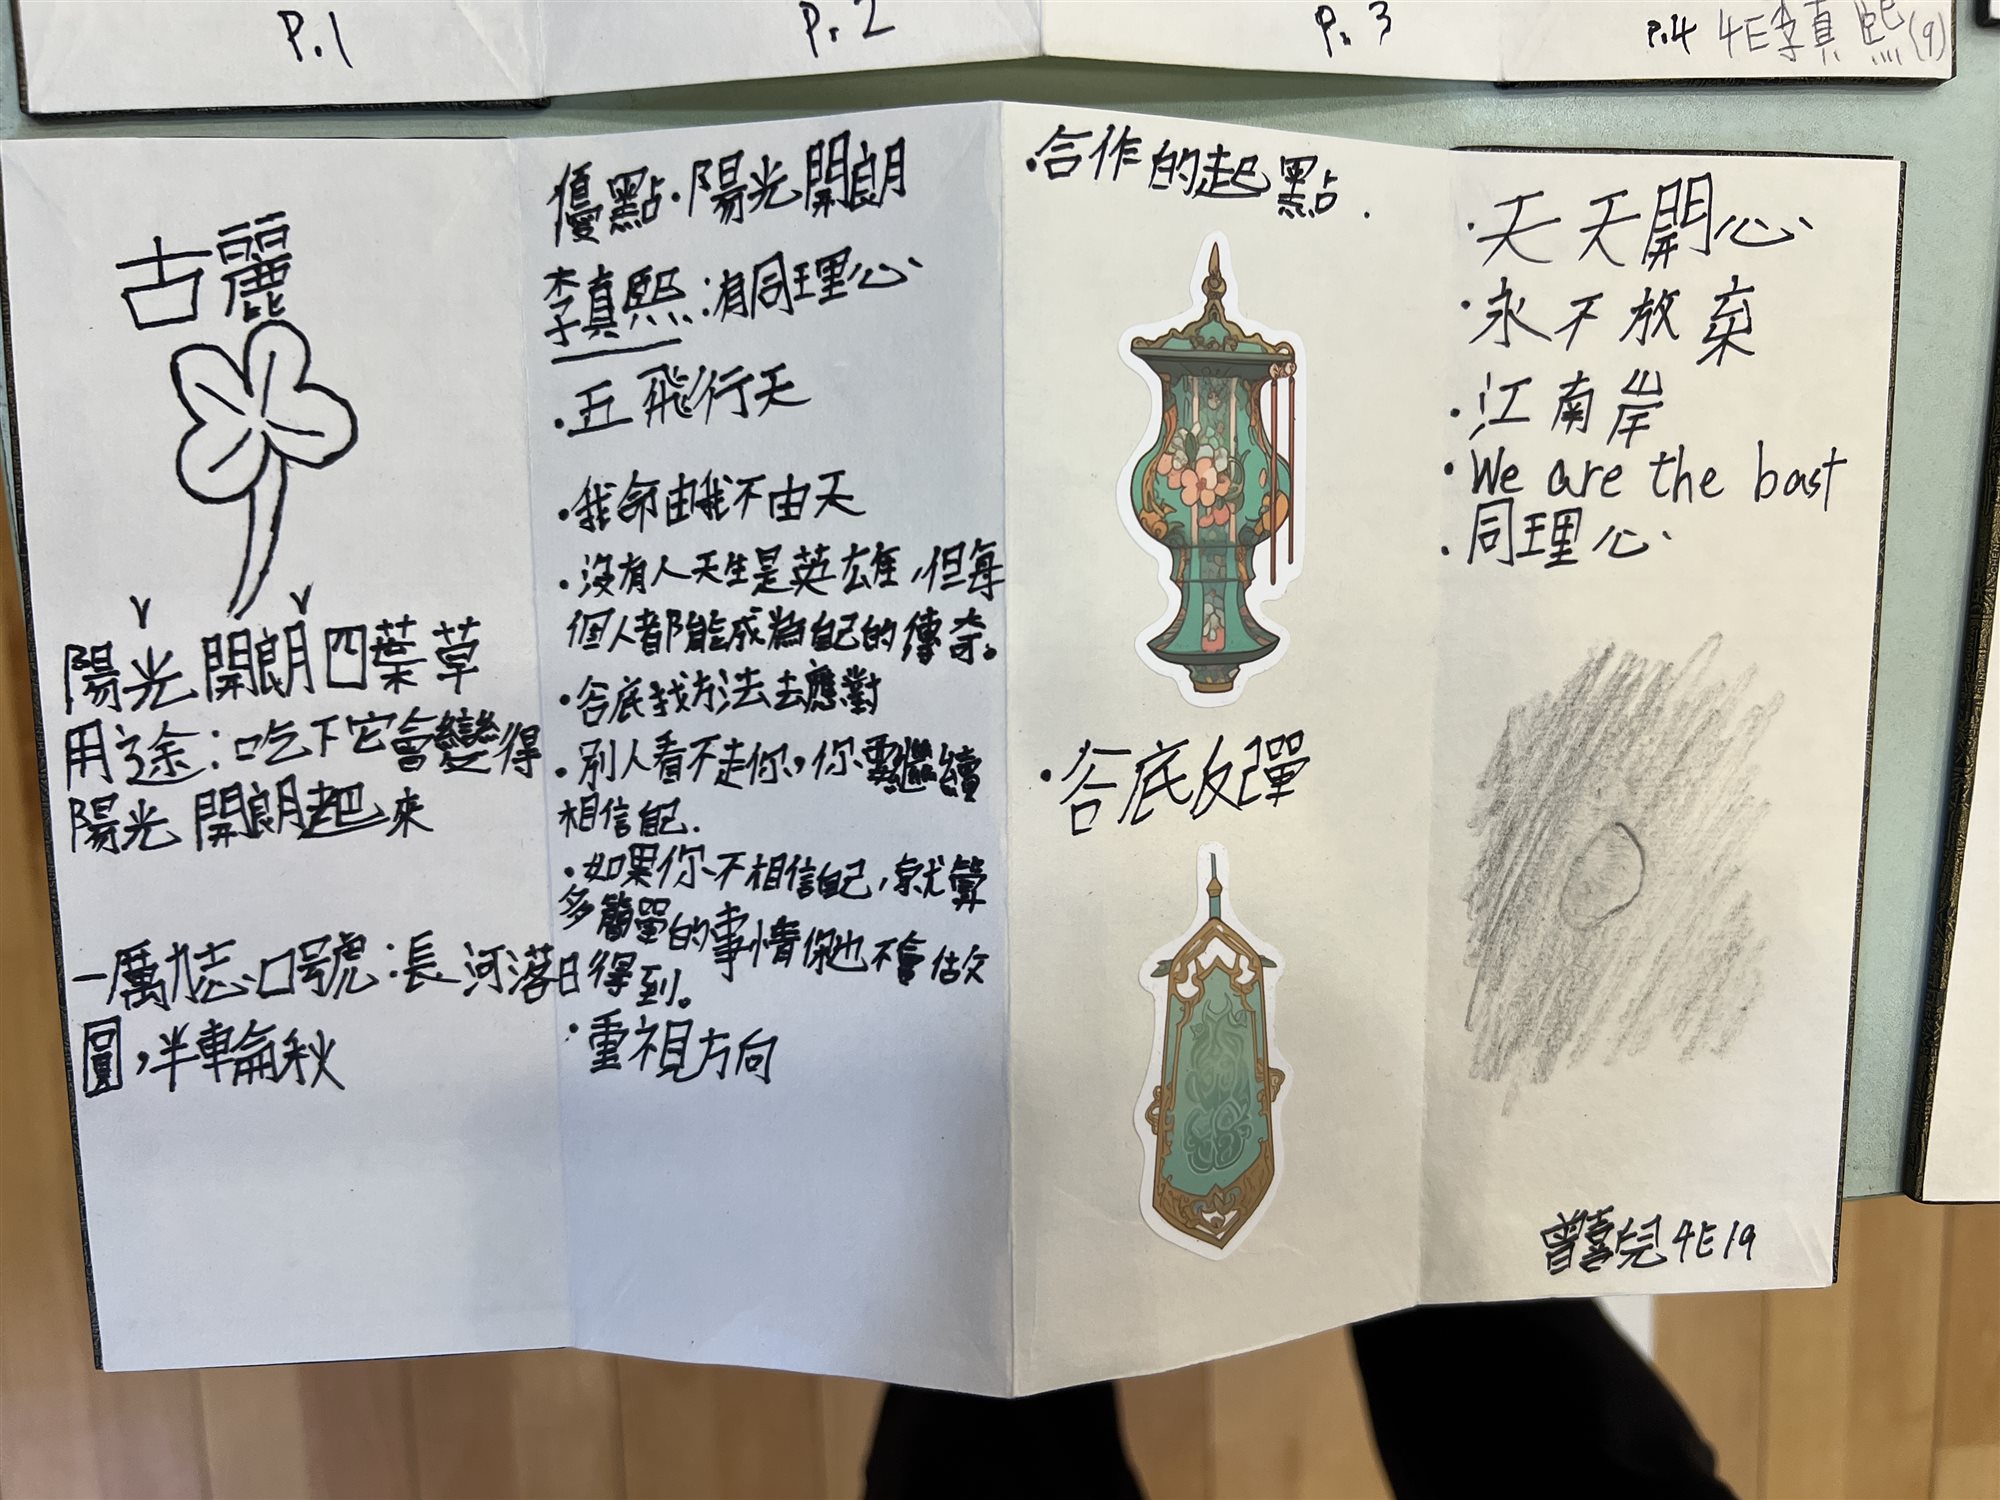 P.1
P.2
P.3
P.4 4E李真熙(9)
古麗
陽光開朗四葉草
用途:吃下它會變得
陽光開朗起來
一厲志口號:長河落日
圓,半輪秋
優點·陽光開朗
李真熙:有同理心
·五飛行天
·我命由我不由天
·沒有人天生是英雄,但每
個人都能成為自己的傳奇。
·谷底找方法去應對
·別人看不走你,你需繼續
相信自己.
·如果你不相信自己,就算
多簡單的事情你也不會估文
得到。
·重視方向
·合作的起點.
·谷底反彈
·天天開心
·永不放棄
·江南岸
·We are the bast
·同理心
曾喜兒4E19